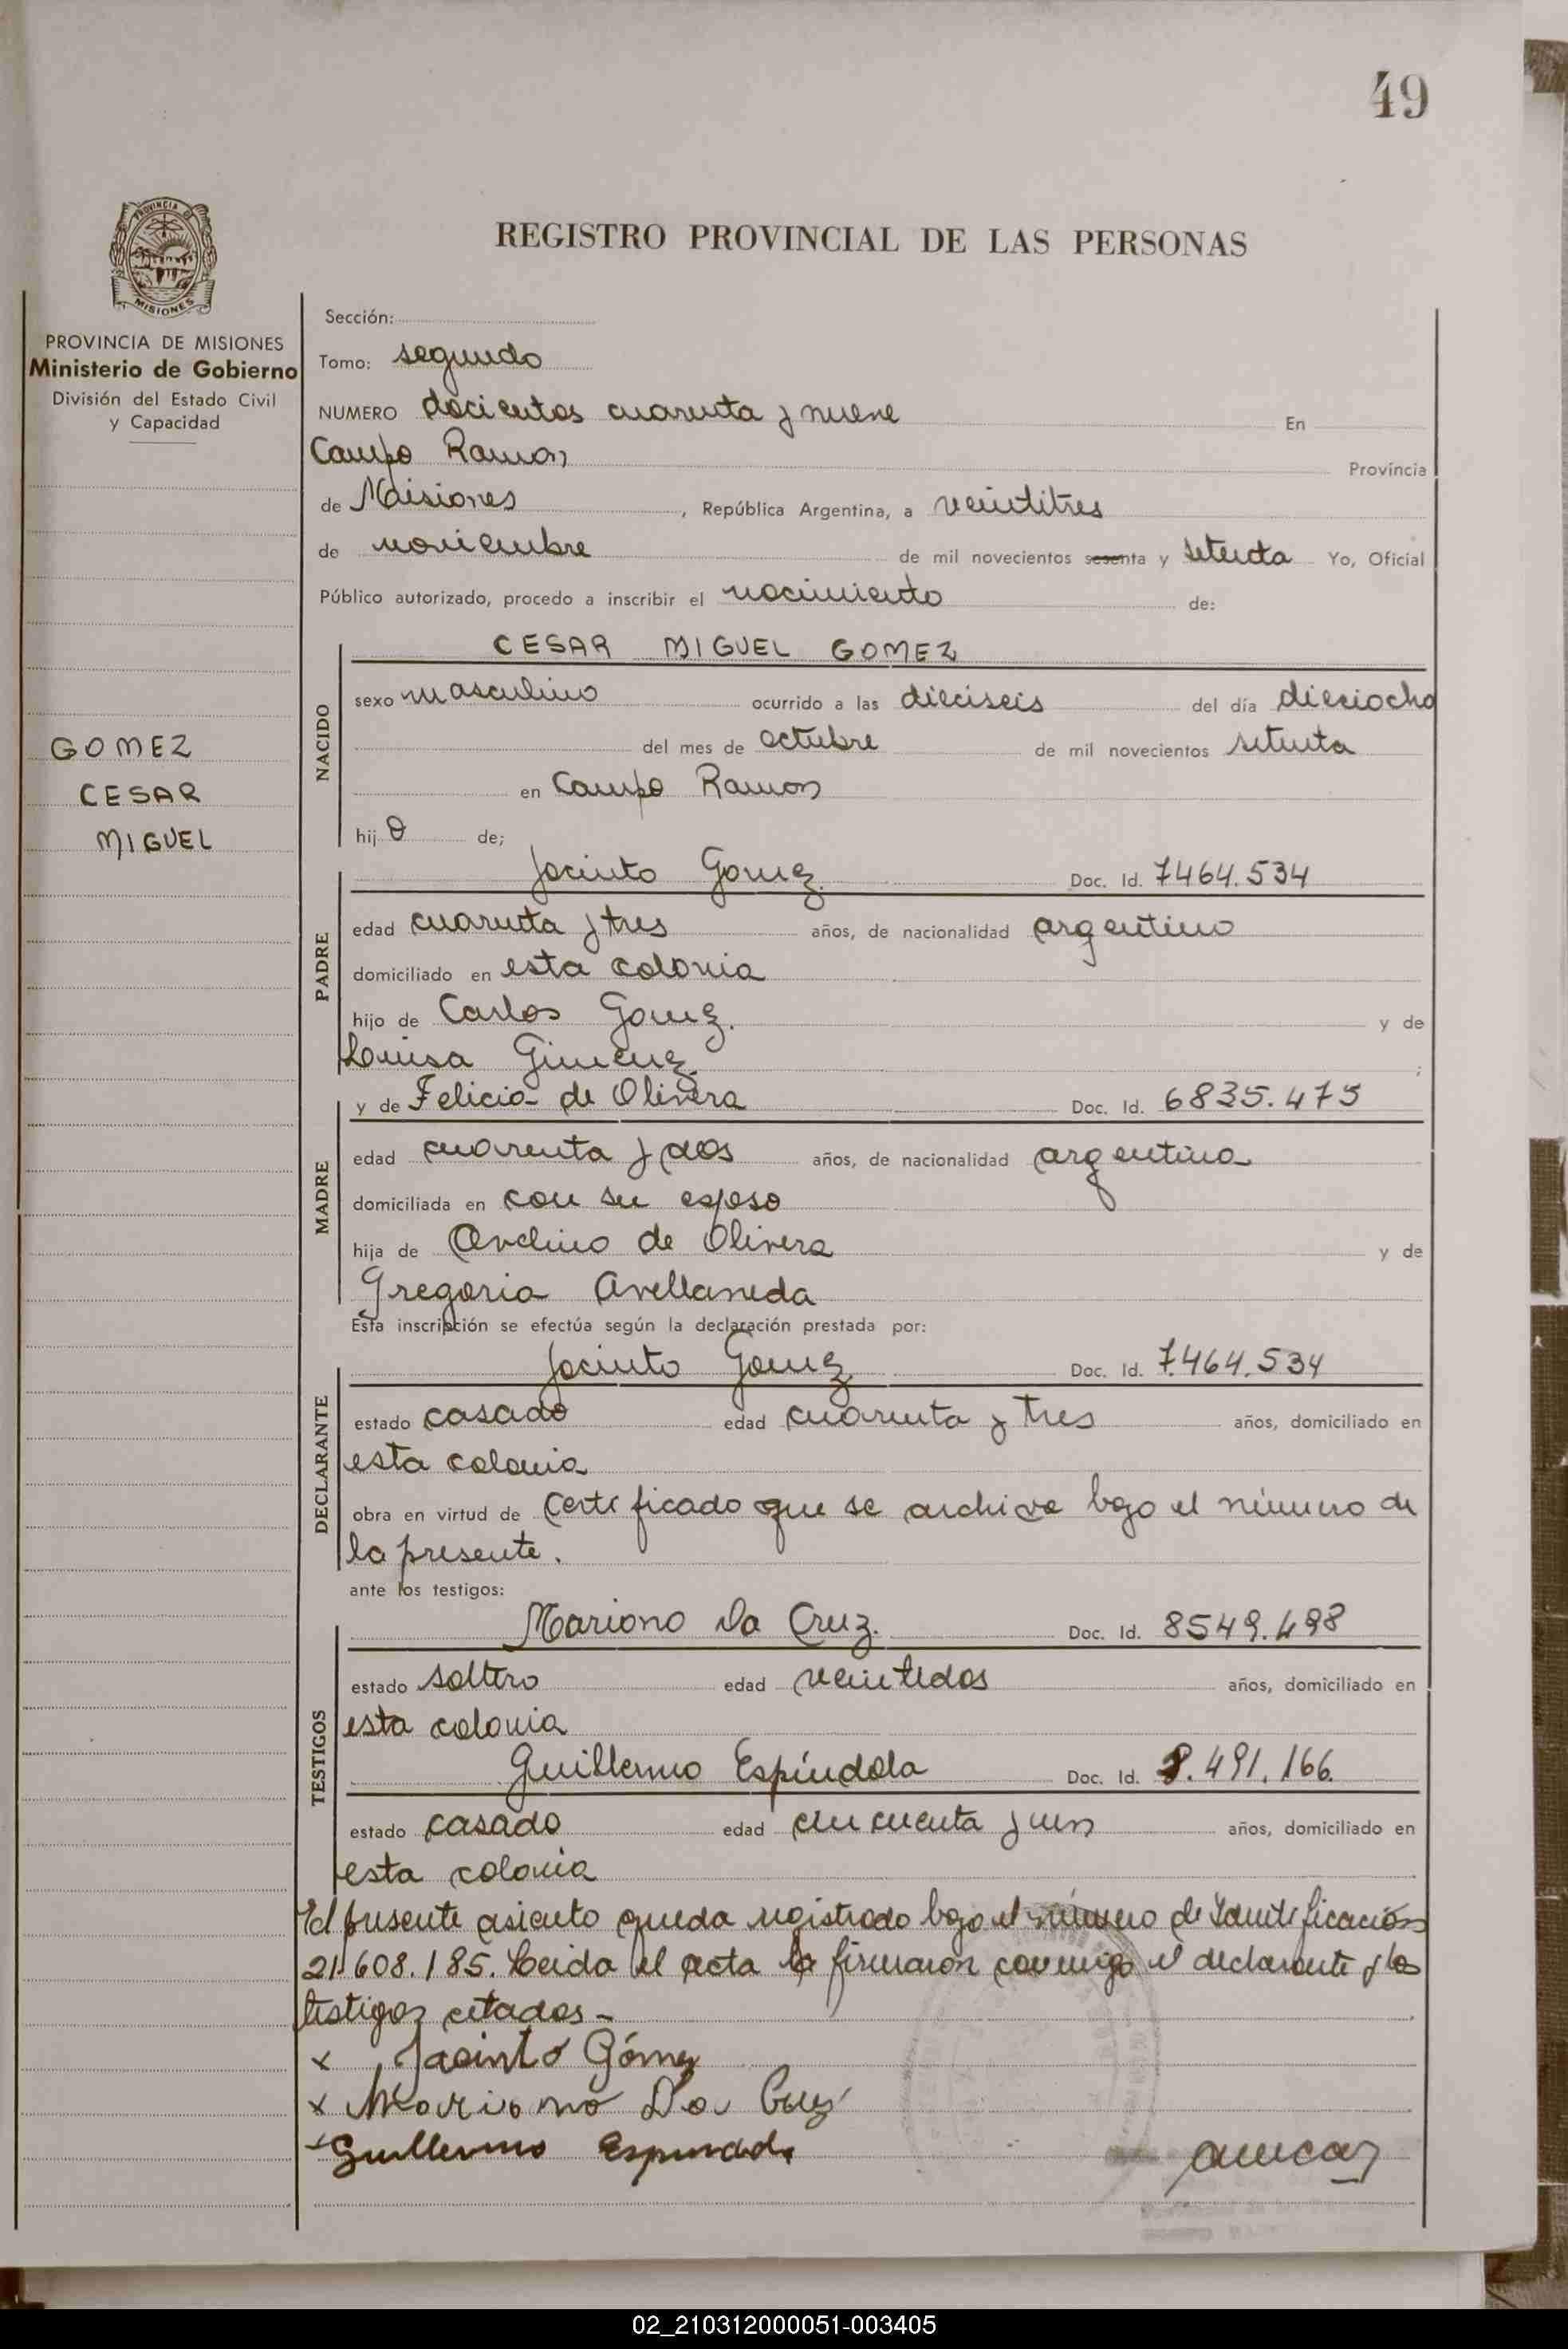 49
PROVINCIA DE MISIONES
REGISTRO PROVINCIAL DE LAS PERSONAS
PROVINCIA DE MISIONES
Ministerio de Gobierno
División del Estado Civil
y Capacidad
GOMEZ
CESAR
MIGUEL
Sección:
Tomo: segundo
NUMERO docientos cuarenta y nueve En
Campo Ramon Provincia
de Misiones, República Argentina, a veintitres
de noviembre de mil novecientos sesenta y setenta Yo, Oficial
Público autorizado, procedo a inscribir el nacimiento de:
NACIDO
CESAR MIGUEL GOMEZ
sexo masculino ocurrido a las dieciseis del día dieciocho
del mes de octubre de mil novecientos setenta
en Campo Ramon
hij o de;
PADRE
Jacinto Gomez Doc. Id. 7464.534
edad cuarenta y tres años, de nacionalidad argentino
domiciliado en esta colonia
hijo de Carlos Gomez. y de
Luisa Gimenez ;
MADRE
y de Felicia de Olivera Doc. Id. 6835.475
edad cuarenta y dos años, de nacionalidad argentina
domiciliada en con su esposo
hija de Avelino de Olivera y de
Gregoria Avellaneda
Esta inscripción se efectúa según la declaración prestada por:
DECLARANTE
Jacinto Gomez Doc. Id. 7.464.534
estado casado edad cuarenta y tres años, domiciliado en
esta colonia
obra en virtud de certificado que se archiva bajo el número de
la presente.
ante los testigos:
TESTIGOS
Mariano Da Cruz. Doc. Id. 8549.498
estado soltero edad veintidos años, domiciliado en
esta colonia
Guillermo Espíndola Doc. Id. 8.491.166.
estado casado edad cincuenta y un años, domiciliado en
esta colonia
El presente asiento queda registrado bajo el número de Identificación
21.608.185. Leida el acta la firmaron conmigo el declarante y los
testigos citados-
x Jacinto Gómez
x Mariano Da Cruz
x Guillermo Espindola
02_210312000051-003405